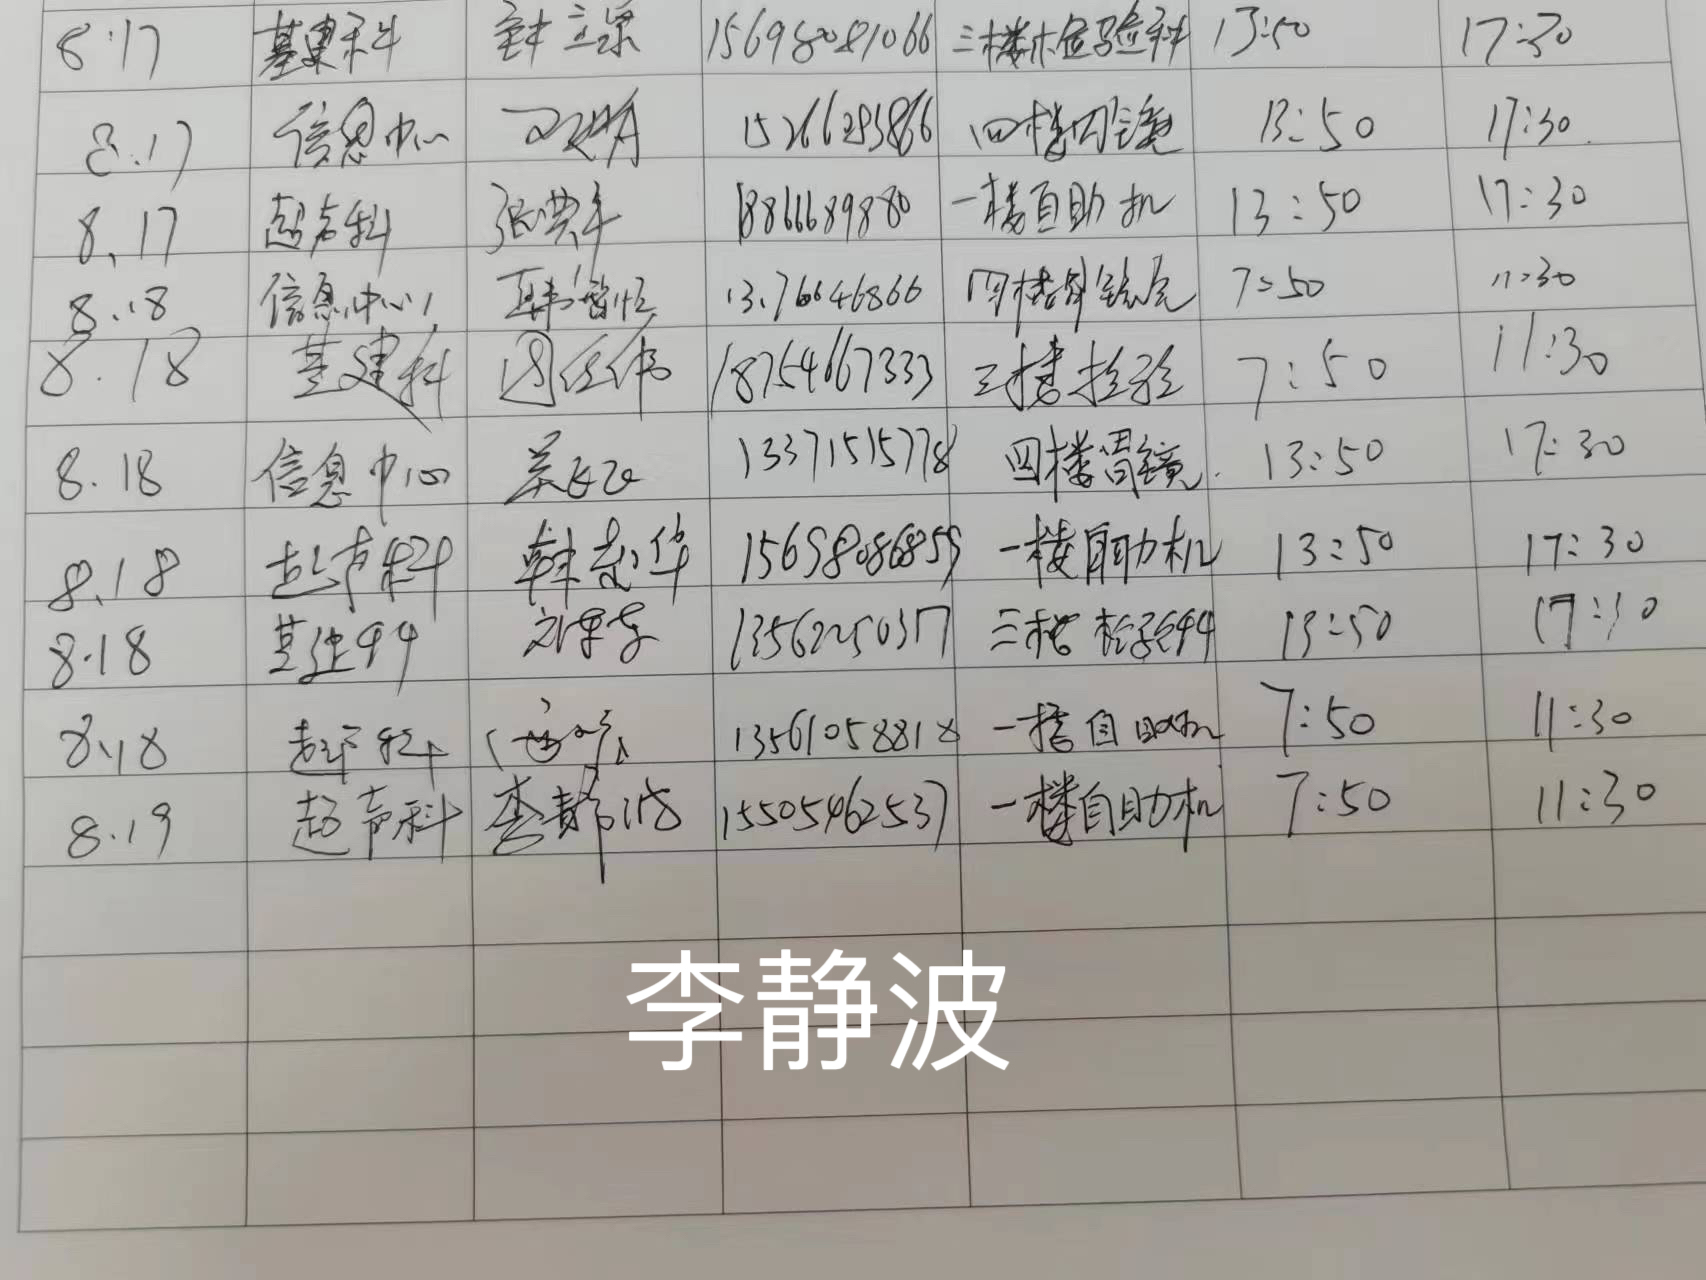 8.17 基建科 韩立泉 15698081066 三楼检验科 13:50 17:30
8.17 信息中心 15266285866 四楼胃镜 13:50 17:30
8.17 超声科 18866689880 一楼自助机 13:50 17:30
8.18 信息中心 13176646866 四楼胃镜室 7:50 11:30
8.18 基建科 周任伟 18754667333 三楼检验 7:50 11:30
8.18 信息中心 13371515778 四楼胃镜 13:50 17:30
8.18 超声科 韩志华 15698086855 一楼自助机 13:50 17:30
8.18 基建科 13562250317 三楼检验科 13:50 17:30
8.18 超声科 13561058818 一楼自助机 7:50 11:30
8.19 超声科 李静波 15505462537 一楼自助机 7:50 11:30
李静波